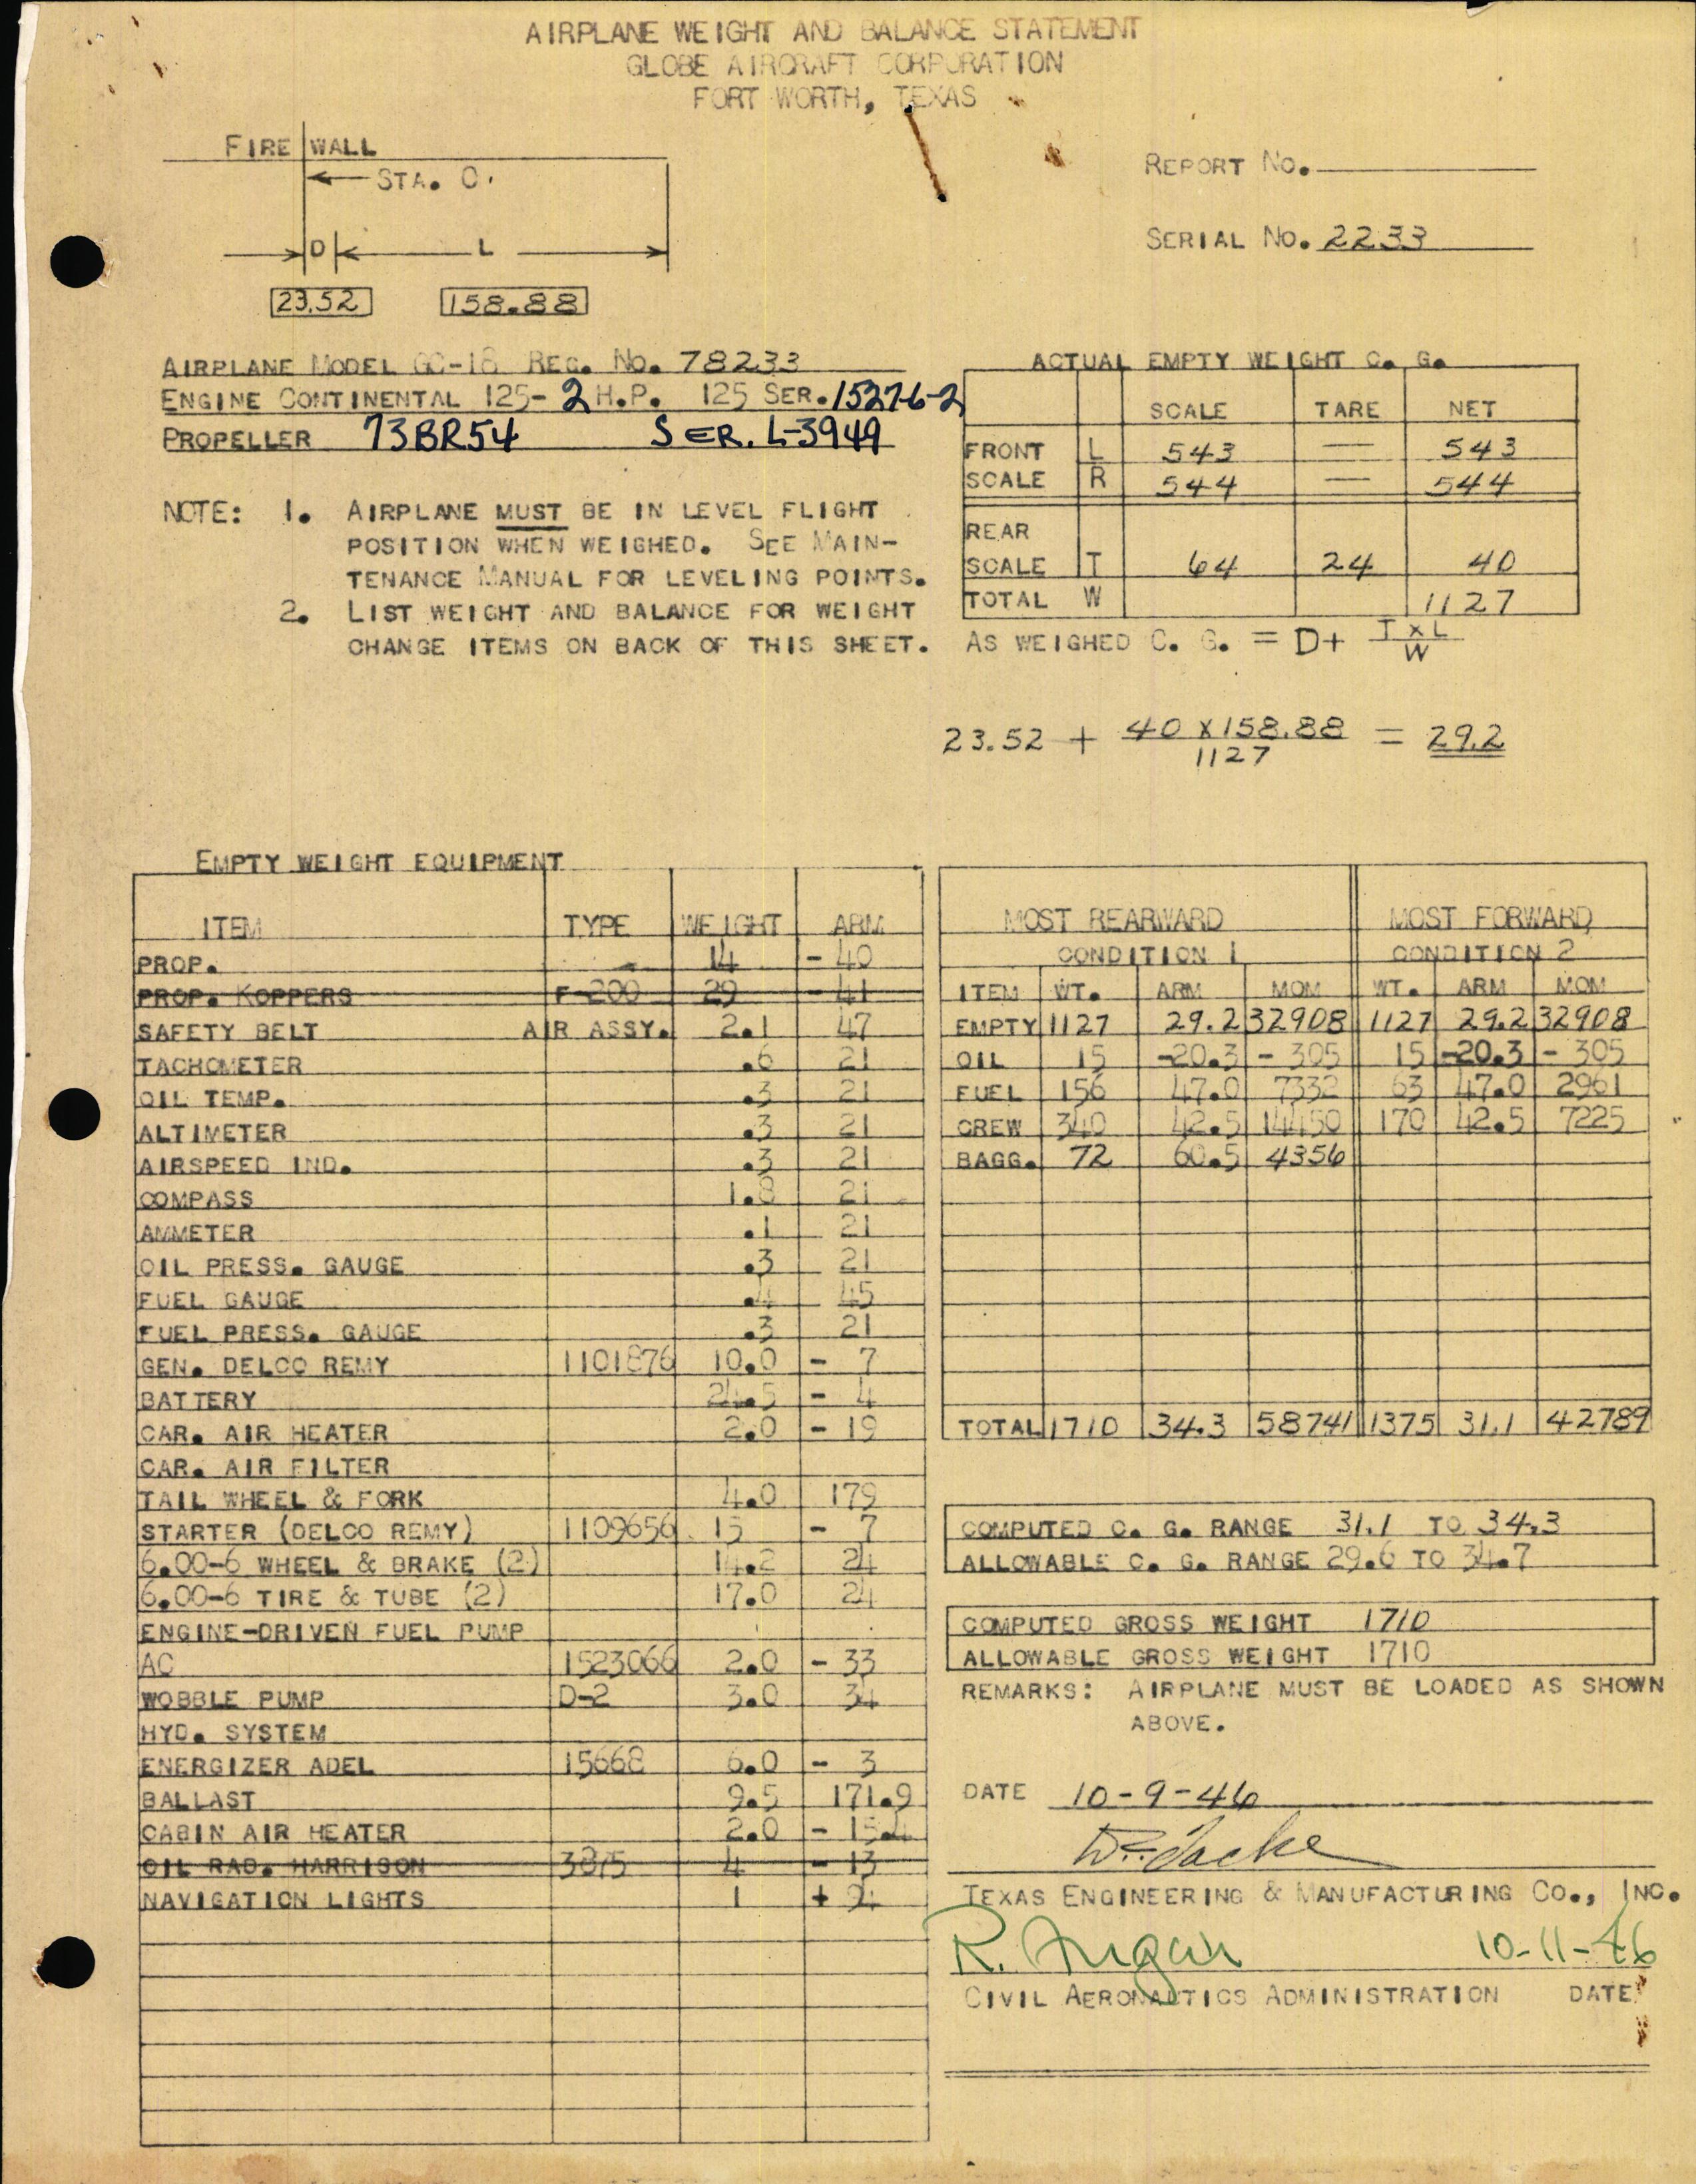 AIRPLANE WEIGHT AND BALANCE STATEMENT
GLOBE AIRCRAFT CORPORATION
FORT WORTH, TEXAS
FIRE WALL
STA. 0.
D L
23.52 158.88
REPORT NO.
SERIAL NO. 2233
AIRPLANE MODEL GC-1B REG. NO. 78233
ENGINE CONTINENTAL 125-2 H.P. 125 SER. 15276-2
PROPELLER 73BR54 SER. L-3949
NOTE: 1. AIRPLANE MUST BE IN LEVEL FLIGHT
POSITION WHEN WEIGHED. SEE MAIN-
TENANCE MANUAL FOR LEVELING POINTS.
2. LIST WEIGHT AND BALANCE FOR WEIGHT
CHANGE ITEMS ON BACK OF THIS SHEET.
ACTUAL EMPTY WEIGHT C. G.
SCALE TARE NET
FRONT L 543 — 543
SCALE R 544 — 544
REAR
SCALE T 64 24 40
TOTAL W 1127
AS WEIGHED C. G. = D+ T x L
W
23.52 + 40 x 158.88 = 29.2
1127
EMPTY WEIGHT EQUIPMENT
ITEM TYPE WEIGHT ARM
PROP. 14 - 40
PROP. KOPPERS F-200 29 - 41
SAFETY BELT AIR ASSY. 2.1 47
TACHOMETER .6 21
OIL TEMP. .3 21
ALTIMETER .3 21
AIRSPEED IND. .3 21
COMPASS 1.8 21
AMMETER .1 21
OIL PRESS. GAUGE .3 21
FUEL GAUGE .4 45
FUEL PRESS. GAUGE .3 21
GEN. DELCO REMY 1101876 10.0 - 7
BATTERY 24.5 - 4
CAR. AIR HEATER 2.0 - 19
CAR. AIR FILTER
TAIL WHEEL & FORK 4.0 179
STARTER (DELCO REMY) 1109656 15 - 7
6.00-6 WHEEL & BRAKE (2) 14.2 24
6.00-6 TIRE & TUBE (2) 17.0 24
ENGINE-DRIVEN FUEL PUMP
AC 1523066 2.0 - 33
WOBBLE PUMP D-2 3.0 34
HYD. SYSTEM
ENERGIZER ADEL 15668 6.0 - 3
BALLAST 9.5 171.9
CABIN AIR HEATER 2.0 - 15.4
OIL RAD. HARRISON 3875 4 - 13
NAVIGATION LIGHTS 1 +
MOST REARWARD MOST FORWARD
CONDITION 1 CONDITION 2
ITEM WT. ARM MOM WT. ARM MOM
EMPTY 1127 29.2 32908 1127 29.2 32908
OIL 15 -20.3 - 305 15 -20.3 - 305
FUEL 156 47.0 7332 63 47.0 2961
CREW 340 42.5 14450 170 42.5 7225
BAGG. 72 60.5 4356
TOTAL 1710 34.3 58741 1375 31.1 42789
COMPUTED C. G. RANGE 31.1 TO 34.3
ALLOWABLE C. G. RANGE 29.6 TO 34.7
COMPUTED GROSS WEIGHT 1710
ALLOWABLE GROSS WEIGHT 1710
REMARKS: AIRPLANE MUST BE LOADED AS SHOWN
ABOVE.
DATE 10-9-46
TEXAS ENGINEERING & MANUFACTURING CO., INC.
R. 10-11-46
CIVIL AERONAUTICS ADMINISTRATION DATE